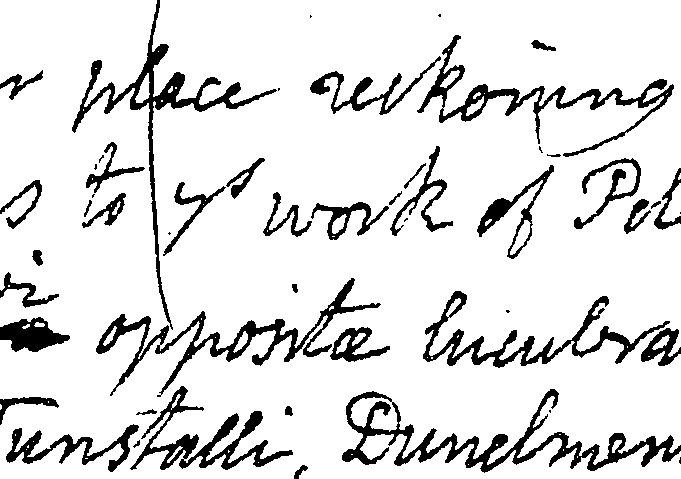 place reckoning
to yˢ work of
oppositæ lucubra
Tunstalli, Dunelmen